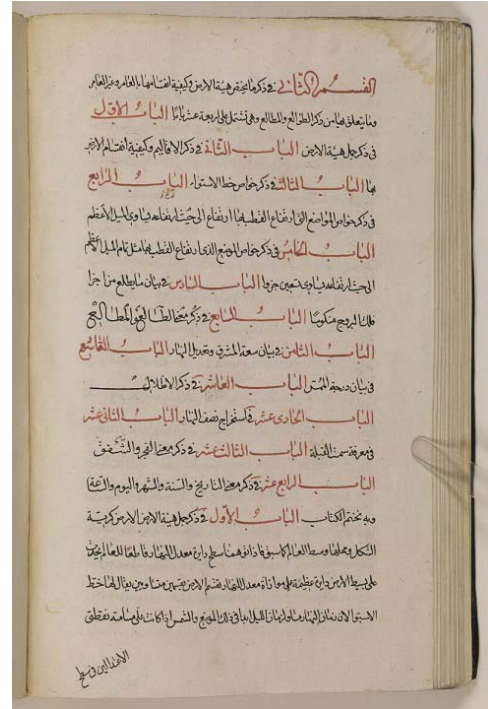 القسم الثاني في ذكر ما يختص هيئة الارض وكيفية انقسامها بالعامر وغير العامر
وما يتعلق بها من ذكر الطوالع والمطالع وهي تشتمل على اربعة عشر بابا الباب الاول
في ذكر جمل هيئة الارض الباب الثاني في ذكر الاقاليم وكيفية انقسام الارض
بها الباب الثالث في ذكر خواص خط الاستواء الباب الرابع
في ذكر خواص المواضع التي ارتفاع القطب بها ارتفاع الى حيث ارتفاعه يساوي الميل الاعظم
الباب الخامس في ذكر خواص الموضع الذي ارتفاع القطب بها مثل تمام الميل الاعظم
الى حيث ارتفاعه يساوي تسعين جزوا الباب السادس في بيان ما يطلع من اجزا
فلك البروج منكوسا الباب السابع في ذكر معنى الطالع والمطالع
الباب الثامن في بيان سعة المشرق وتعديل النهار الباب التاسع
في بيان درجة الممر الباب العاشر في ذكر الاظلال
الباب الحادى عشر في استخراج نصف النهار الباب الثانى عشر
في معرفة سمت القبلة الباب الثالث عشر في ذكر معنى الفجر والشفق
الباب الرابع عشر في ذكر معنى التاريخ والسنة والشهر واليوم والساعة
وبه نختم الكتاب الباب الاول في ذكر جمل هيئة الارض الارض كرية
الشكل ومحلها وسط العالم كما سبق فاذا توهمنا سطح دايرة معدل النهار قاطعا للعالم يحدث
على بسيط الارض دايرة عظيمة على موازاة معدل النهار تقسم الارض بقسمين متساويين يقال لها خط
الاستوا لان زمان النهار مساو لزمان الليل ابدا في ذلك الموضع والشمس اذا كانت على مسامتة نقطتي
الاعتدالين في سطح